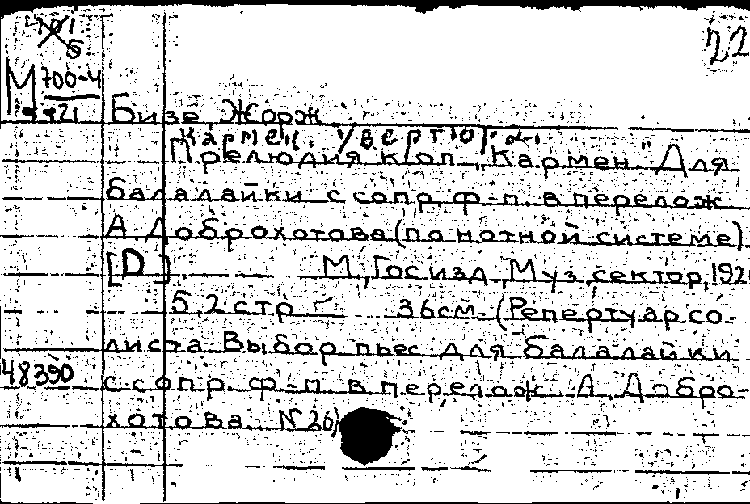 22
М 700-4
Бизе Жорж
Кармен. Увертюра.
Прелюдия к оп. „Кармен" Для
балалайки с сопр. ф-п. в перелож.
А. Доброхотова (по нотной системе)
[D]. М., Госизд., Муз. сектор, 192
5, 2 стр. 36 см. (Репертуар со-
листа. Выбор пьес для балалайки
48390 с сопр. ф-п. в перелож. А. Добро-
хотова. N 26)